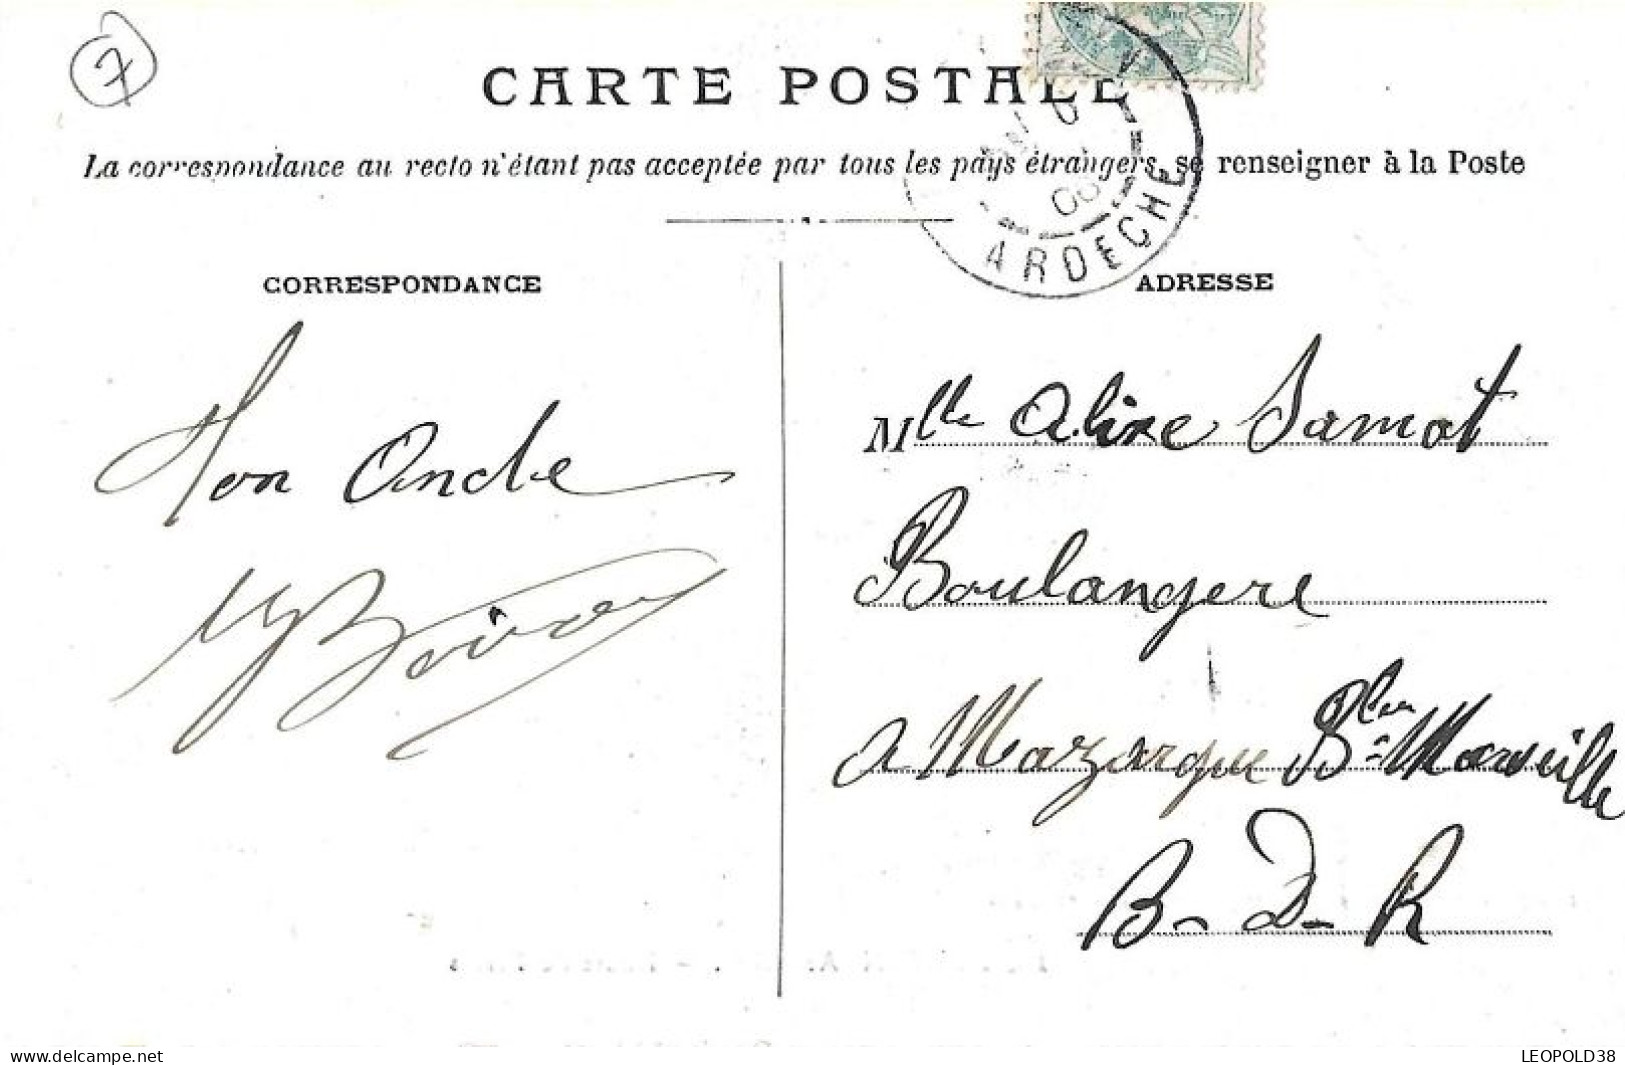 7
CARTE POSTALE
La correspondance au recto n'étant pas acceptée par tous les pays étrangers, se renseigner à la Poste
ARDECHE
CORRESPONDANCE
Ton Oncle
ADRESSE
Mlle Alixe Samat
Boulangere
a Mazargue Blieu Marseille
B-D-R
delcampe.net
LEOPOLD38